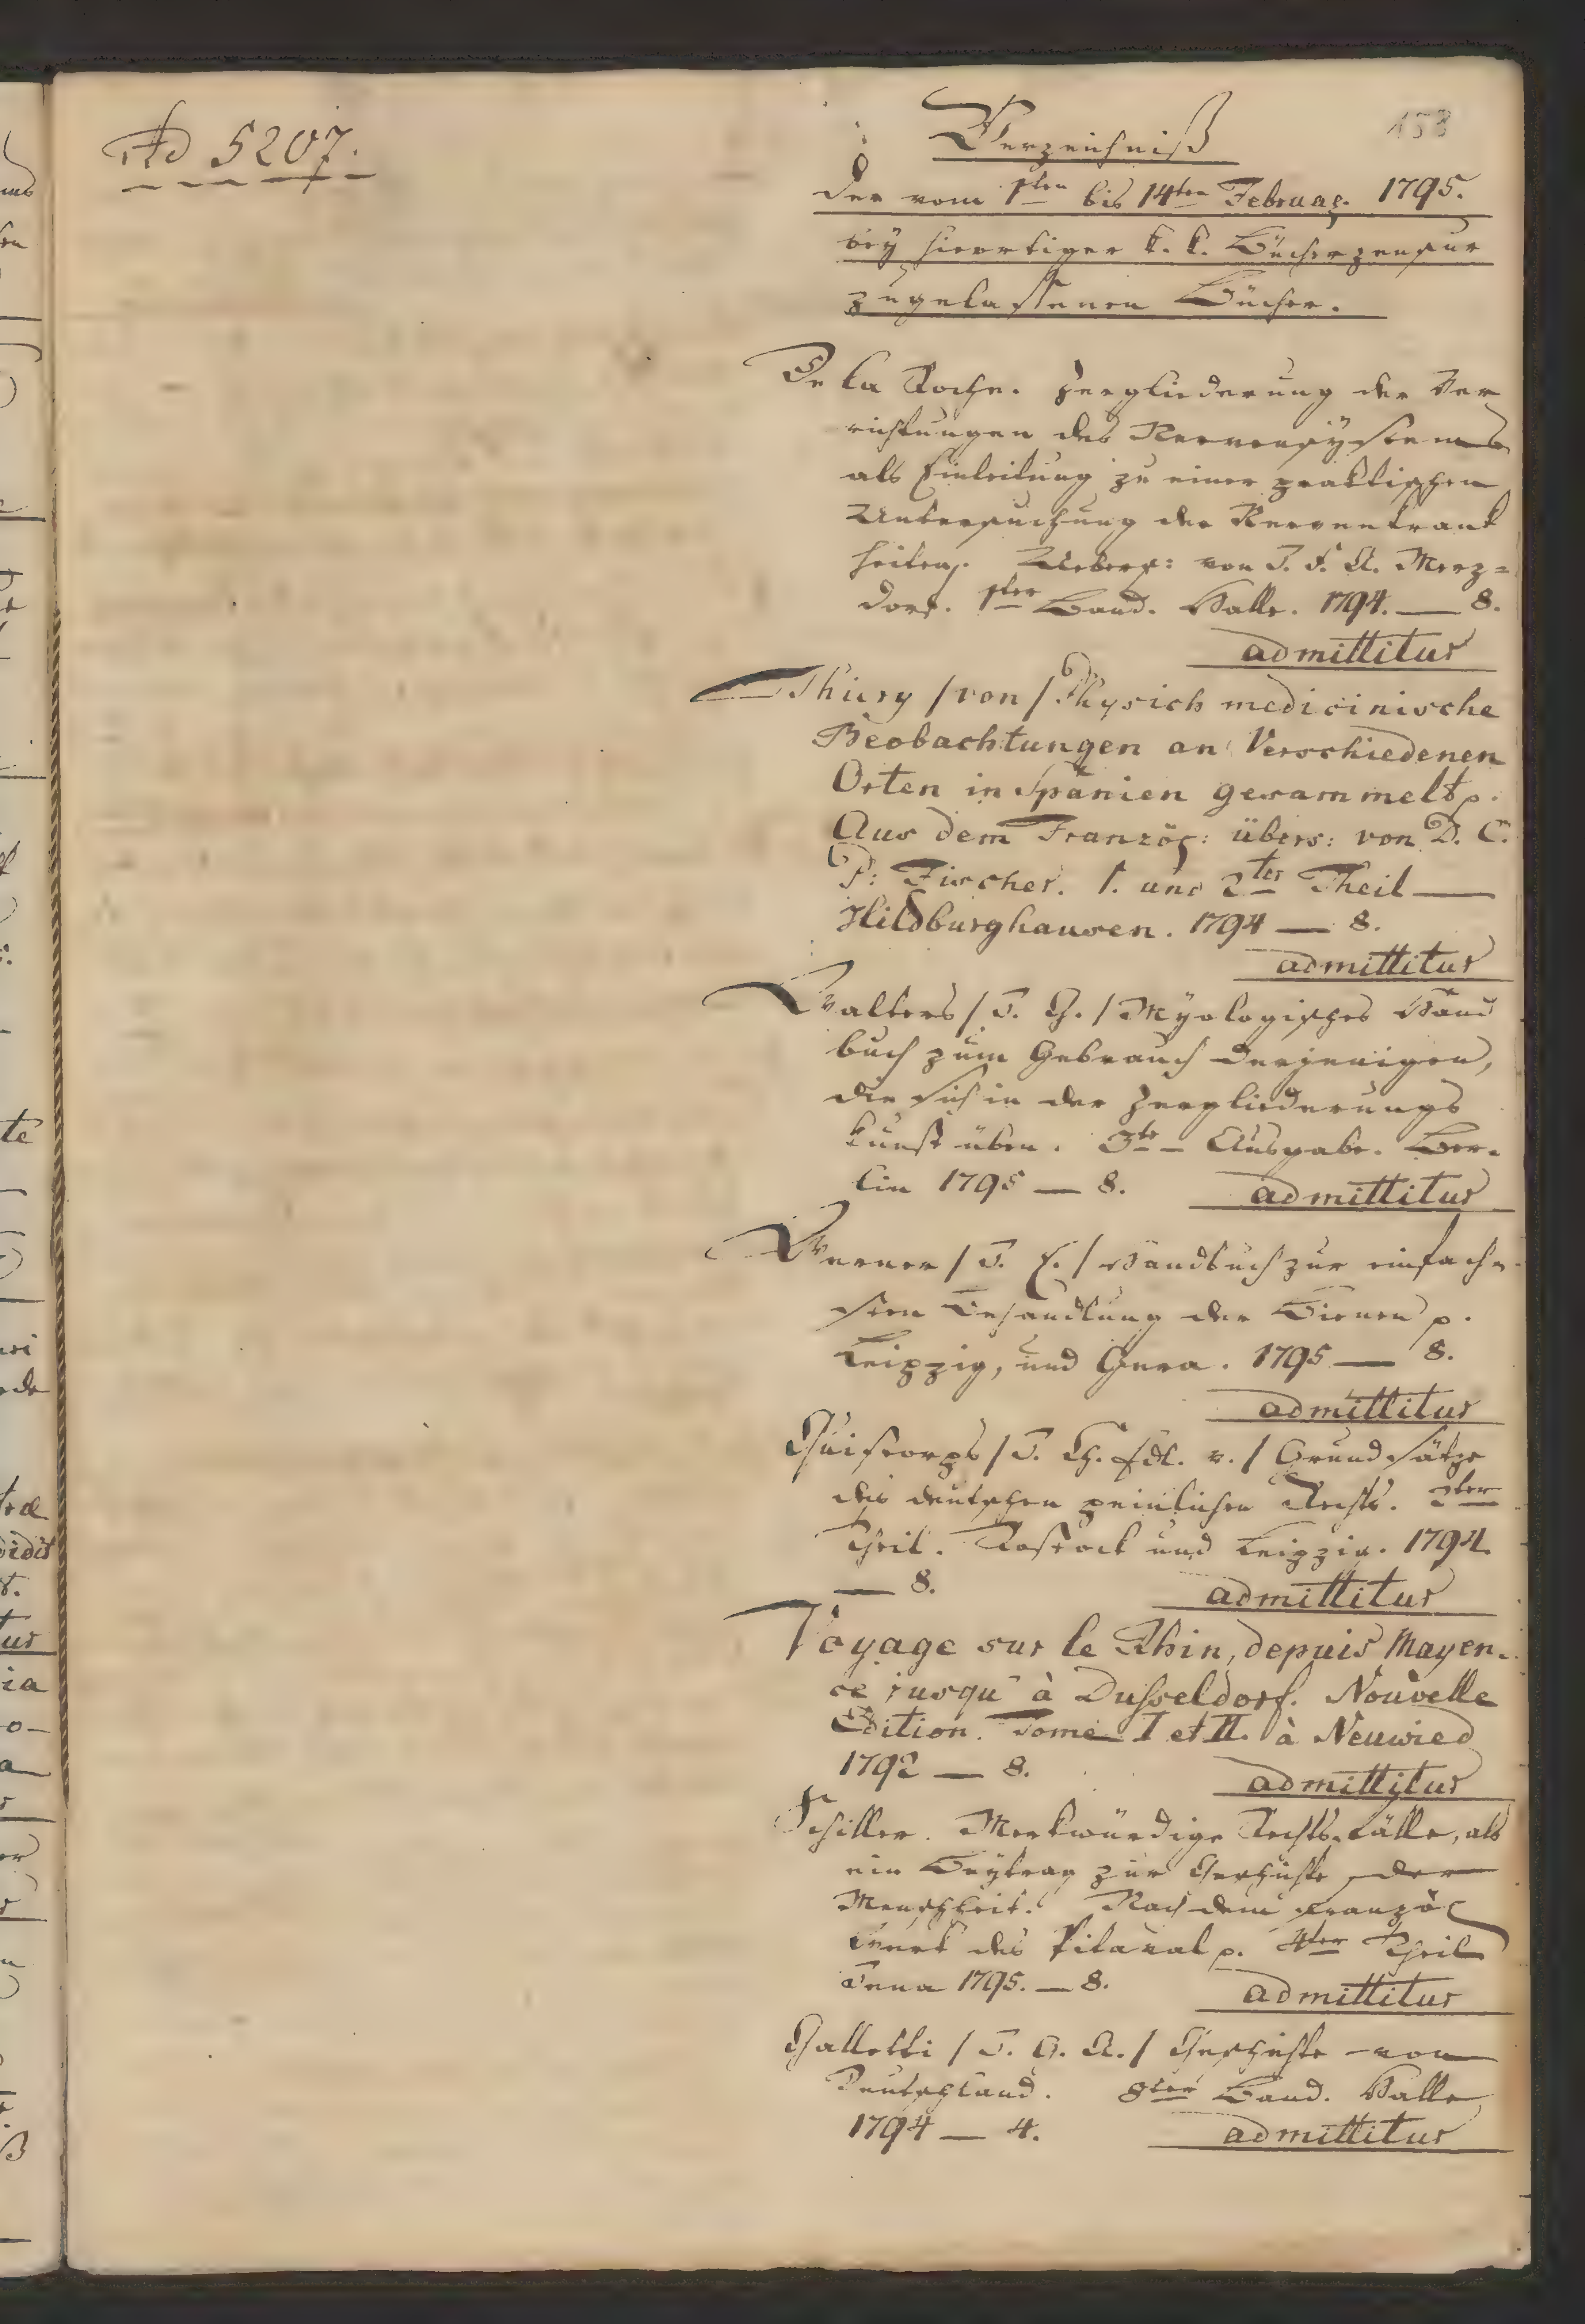 Ad 5207.
153
Verzeichniß
der vom 1ten bis 14ten Februar. 1795.
bey hierortiger k. k. Bücherzensur
zugelassenen Bücher.
De la Roche. Zergliederung der Ver
richtungen des Nervensystems
als Einleitung zu einer praktischen
Untersuchung der Nervenkrank
heiten. Uebers: von J. F. A. Merz=
dorf. 1ter Band. Halle. 1794. — 8.
admittitur
Thiery /von/ Physich medicinische
Beobachtungen an Verschiedenen
Orten in Spanien gesammelt p.
Aus dem Französ: übers: von D. C.
P: Fischer. 1. und 2ter Theil —
Hildburghausen. 1794 — 8.
admittitur
Walters /J. G./ Myologisches Hand
buch zum Gebrauch derjenigen,
die sich in der Zergliederungs
kunst üben. 3te Ausgabe. Ber-
lin 1795 — 8. admittitur
Werner /J. E./ Handbuch zur einfach-
sten Behandlung der Bienen p.
Leipzig, und Gera. 1795 — 8.
admittitur
Quistorps /J. Ch. Edl. v./ Grundsätze
des deutschen peinlichen Rechts. 2ter
Theil. Rostock und Leipzig. 1794.
— 8. admittitur
Voyage sur le Rhin, depuis Mayen-
ce jusqu' à Dusseldorf. Nouvelle
Edition. Tome I et II. à Neuwied
1792 — 8. admittitur
Schiller. Merkwürdige Rechts-Fälle, als
ein Beytrag zur Geschichte der
Menschheit. Nach dem französ
Werk des Pitaval p. 4ter Theil
Jena 1795. — 8. admittitur
Galletti /J. G. A./ Geschichte von
Deutschland. 8ter Band. Halle
1794 — 4. admittitur